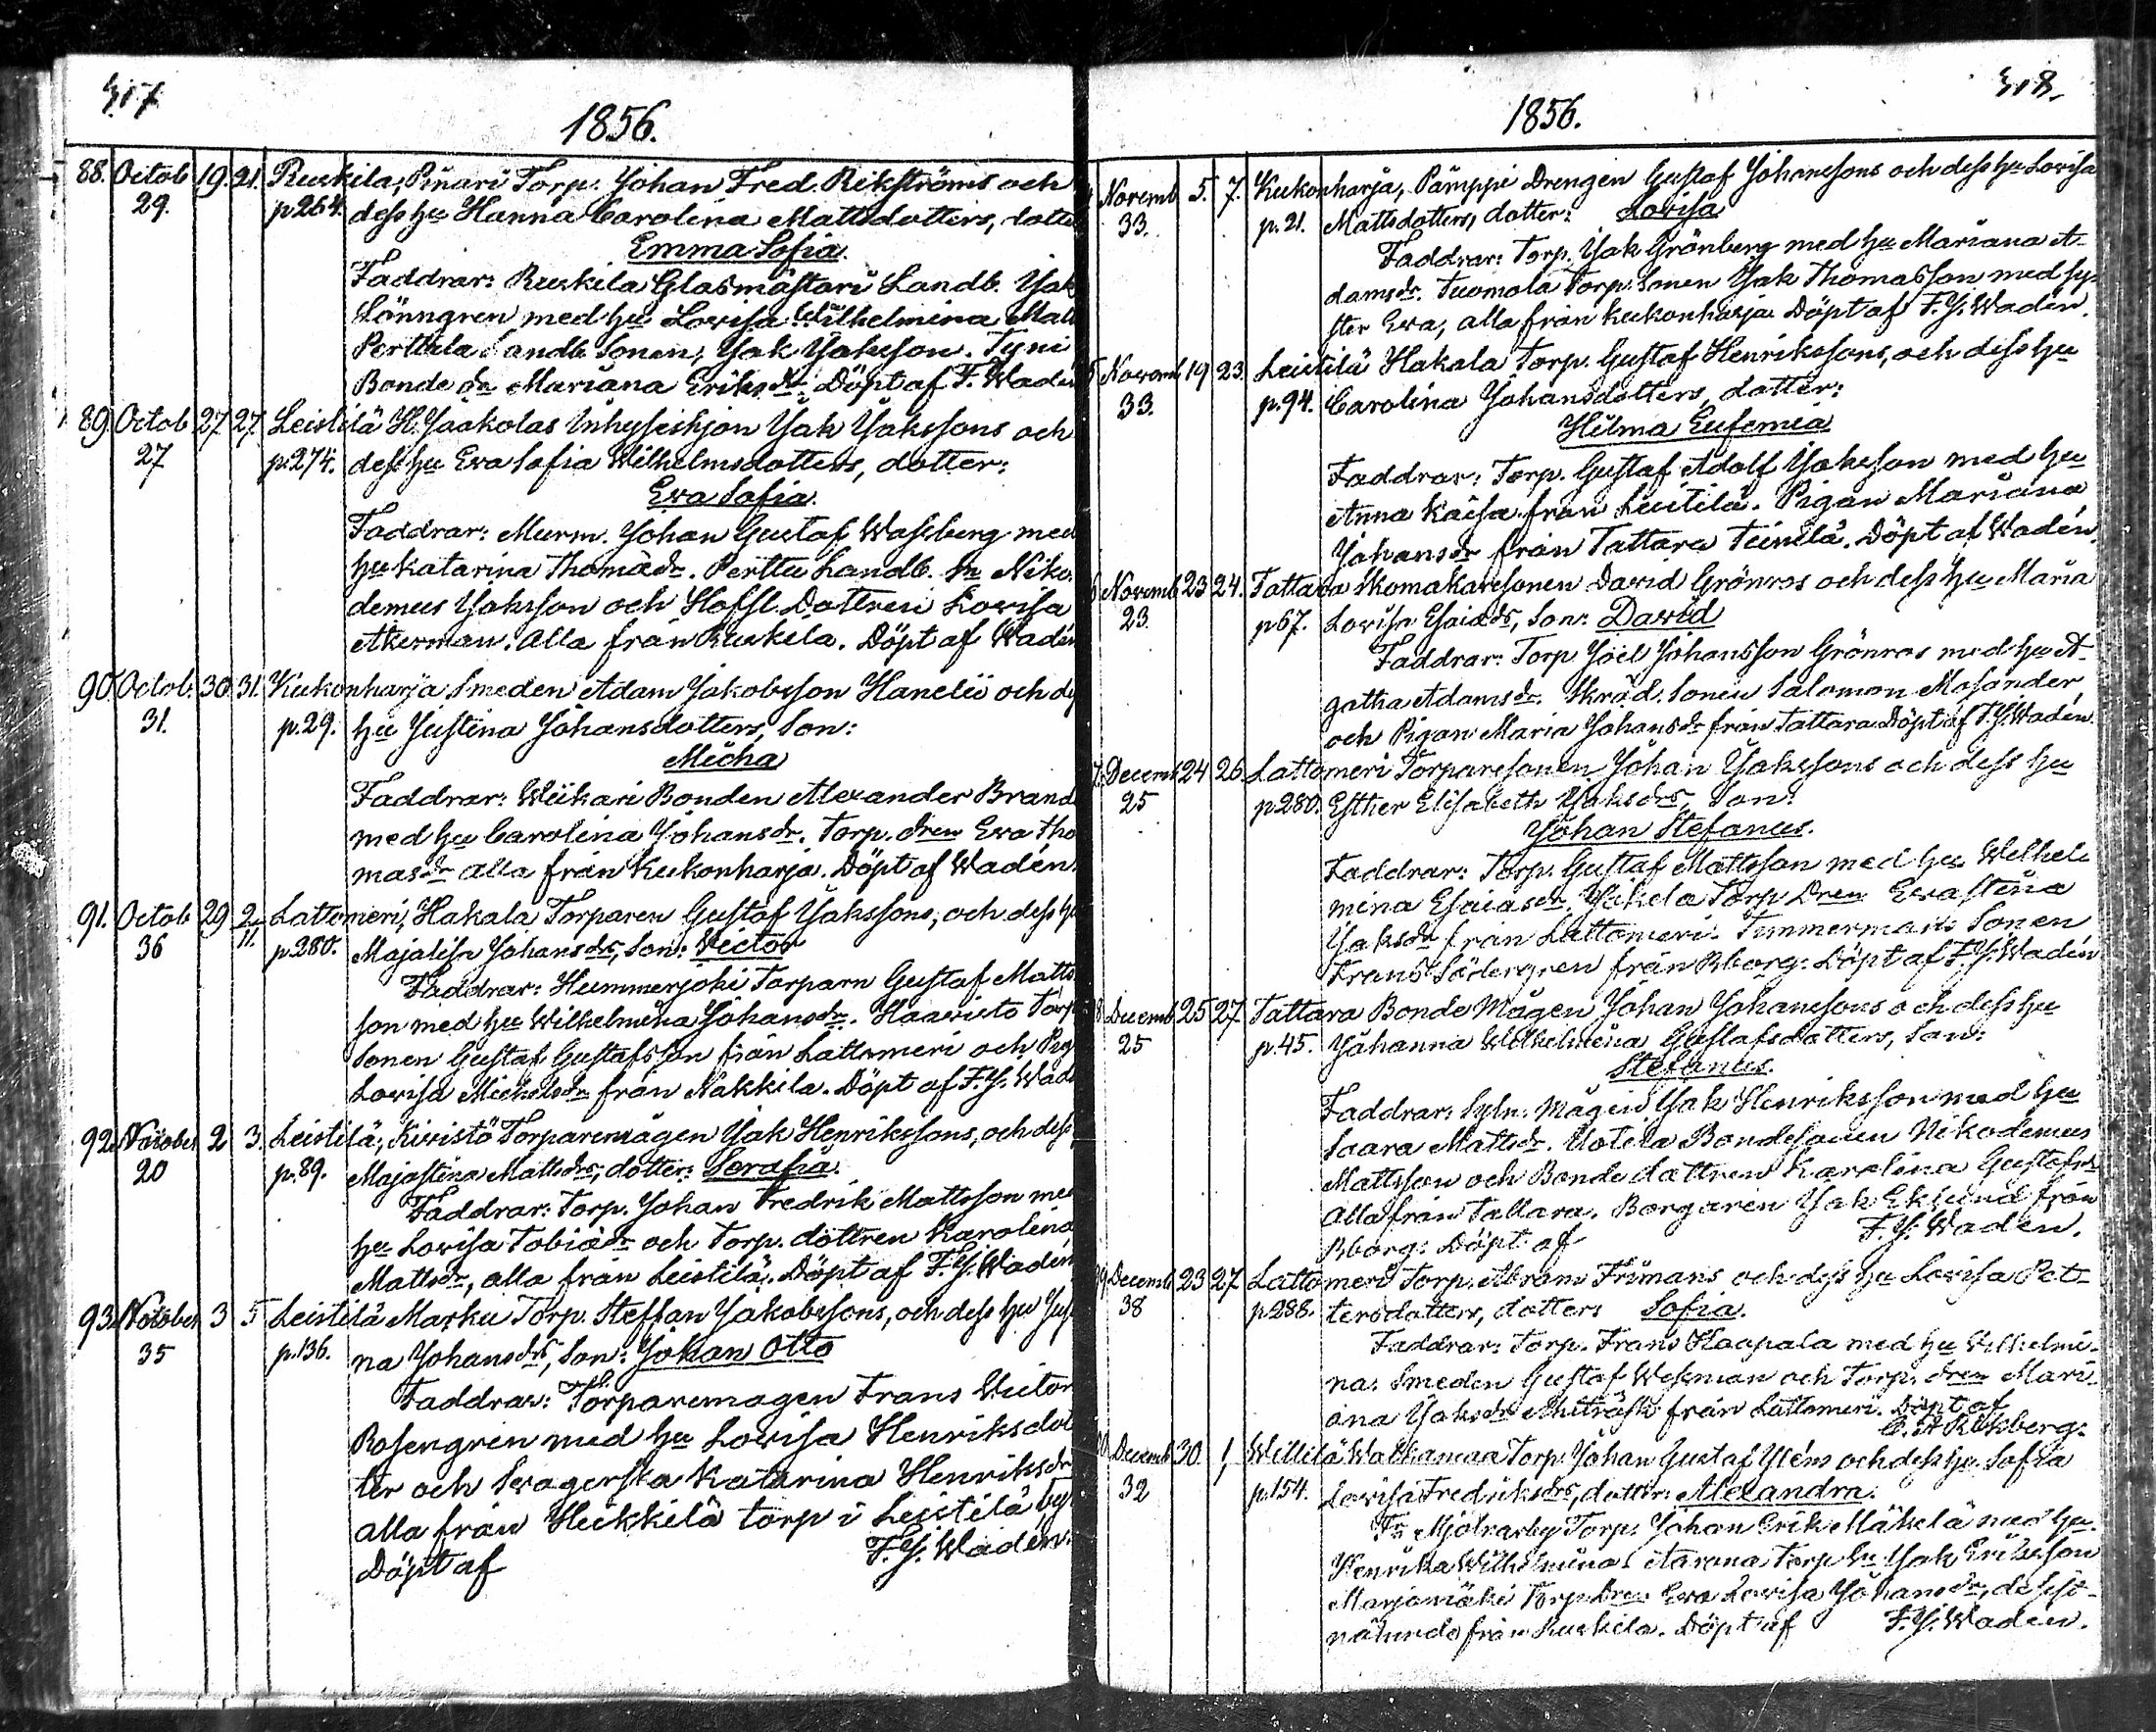 317
1856.
88. Octob 19. 21. Ruskila, Pinari Torp. Johan Fred. Rikströms och
29. p264. dess hu Hanna Carolina Mattsdotters, dotte
Emma Sofia.
Faddrar: Ruskila Glasmästari Landb. Jak
Lönngren med hu Lovisa Wilhelmina Matt
Perttula Landb. Sonen, Jak Jaksson. Tyni
Bonde dn Mariana Eriksdr. Döpt af F. Wadén
89. Octob 27 27. Leistilä H. Jaakolas Inhyseshjon Jak Jakssons och
27 p.274. dess hu Eva Sofia Wilhelmsdotters, dotter:
Eva Sofia.
Faddrar: Murm. Johan Gustaf Wassberg med
hu Katarina Thomädr. Perttu Landb. Sn Niko-
demus Jaksson och Hofsl. Dottren Lovisa
Åkerman. Alla från Ruskila. Döpt af Wadén
90. Octob. 30 31. Kukonharja Smeden Adam Jakobsson Hanelii och de
31. p.29. hu Justina Johansdotters, Son:
Micha
Faddrar: Wiikari Bonden Alexander Brand
med hu Carolina Johansdr. Torp. dren Eva Tho
masdr alla från Kukonharja. Döpt af Wadén.
91. Octob 29 2/11. Lattomeri, Hakala Torparen Gustaf Jakssons, och dess h
36 p.280. Majalisa Johansdrs, Son: Victor
Faddrar: Hummerjoki Torparn Gustaf Matts
son med hu Wilhelmina Johansdr. Haavisto Torp
Sonen Gustaf Gustafsson från Lattomeri och Pig
Lovisa Mickelsdr från Nakkila. Döpt af F. J. Wad
92. November 2 3. Leistilä, Kivistö Torparemågen Jak Henrikssons, och dess
20 p.89. Majastina Mattsdrs, dotter: Serafia.
Faddrar: Torp. Johan Fredrik Mattsson med
hu Lovisa Tobiädr och Torp. dottren Karolina
Mattsdr, alla från Leistilä. Döpt af F. J. Wadén
93. November 3 5 Leistilä Marku Torp. Steffan Jakobssons, och dess hu Jus
35 p.136. na Johansdrs, Son: Johan Otto
Faddrar: Torparemagen Frans Victor
Rosengren med hu Lovisa Henriksdot
ter och Svagerska Katarina Henriksdr
alla från Heikkilä torp i Leistilä by
Döpt af F. J. Wadén.
318.
1856.
Novemb 5. 7. Kukonharja, Pämppi Drengen Gustaf Johanssons och dess hu Lovisa
33. p.21. Mattsdotters, dotter: Lovisa
Faddrar: Torp. Jak Grönberg med hu Mariana A-
damsdr. Tuomola Torp. Sonen Jak Thomasson med sy-
ster Eva, alla från Kukonharja. Döpt af F. J. Wadén.
Novemb 19 23. Leistilä Hakala Torp. Gustaf Henrikssons, och dess hu
33. p.94. Carolina Johansdotters, dotter:
Hilma Eufemia
Faddrar: Torp. Gustaf Adolf Jaksson med hu
Anna Kaisa från Leistilä. Pigan Mariana
Johansdr från Tattara Teinilä. Döpt af Wadén.
Novemb 23 24. Tattara Skomakaresonen David Grönros och dess hu Maria
23. p67. Lovisa Esaiädrs, Son: David
Faddrar: Torp Joel Johansson Grönros med hu A-
gatha Adamsdr. Skräd. Sonen Salomon Mosander
och Pigan Maria Johansdr från Tattara. Döpt af F. J. Wadén.
Decemb 24 26. Lattomeri Torparesonen Johan Jakssons och dess hu
25 p280. Esther Elisabeth Jaksdrs, Son:
Johan Stefanus.
Faddrar: Torp. Gustaf Mattsson med hu Wilhel-
mina Esaiasdr. Jakola Torp Dren Evastina
Jaksdr från Lattomeri. Timmermans Sonen
Frans Södergren från Bborg: Döpt af F. J. Wadén
Decemb 25 27 Tattara Bonde Mågen Johan Johanssons och dess hu
25 p.45. Johanna Wilhelmina Gustafsdotters, Son:
Stefanus.
Faddrar: Sytn: Mågen Jak Henriksson med hu
Saara Mattsdr. Uotila Bondesonen Nikodemus
Mattsson och Bonde dottren Karolina Gustafsdr
alla från Tattara. Borgaren Jak Eklund från
Bborg: Döpt af F. J. Wadén.
Decemb 23 27. Lattomeri Torp. Abram Frimans och dess hu Lovisa Pet-
38 p.288. tersdotters, dotter: Sofia.
Faddrar: Torp. Frans Haapala med hu Wilhelmi-
na. Smeden Gustaf Wessman och Torp. dren Mari-
ana Jaksdr från Lattomeri. Döpt af
Decemb 30. 1. Willilä Torp. Johan Gustaf Yléns och dess hu Sofia
32 p.154. Lovisa Fredriksdrs, dotter: Alexandra.
Fr Torp. Johan Erik Mäkelä med hu
Henrika Wilhelmina. Torp Sn Jak Eriksson
Marjamäki Torp. Dren Eva Lovisa Johansdr, dessfö-
nämnde från Ruskila. Döpt af F. J. Wadén.